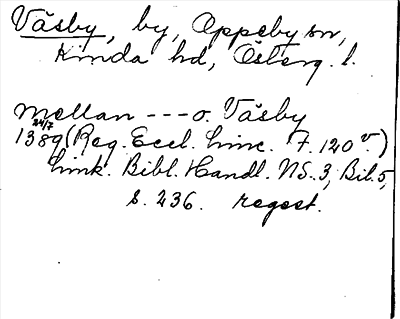 Väsby, by, Oppeby sn,
Kinda hd, Österg. l.
mellan --- o. Väsby
24/7
1389 (Reg. Eccl. Linc. F. 120 v.)
Link. Bibl. Handl. NS. 3, Bil. 5,
s. 236. regest.